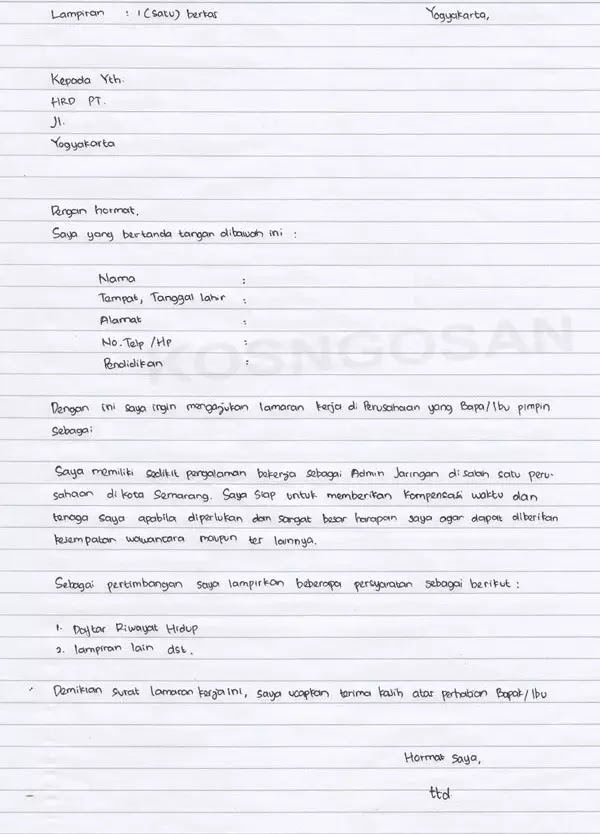 Lampiran : 1 (satu) berkas Yogyakarta,
Kepada Yth.
HRD PT.
Jl.
Yogyakarta
Dengan hormat,
Saya yang bertanda tangan dibawah ini :
Nama :
Tempat, Tanggal lahir :
Alamat :
No. Telp /Hp :
Pendidikan :
KOSNGOSAN
Dengan ini saya ingin mengajukan lamaran kerja di Perusahaan yang Bapa/Ibu pimpin
Sebagai
Saya memiliki sedikit pengalaman bekerja sebagai Admin Jaringan di salah satu peru-
sahaan di kota Semarang. Saya siap untuk memberikan kompensasi waktu dan
tenaga saya apabila diperlukan dan sangat besar harapan saya agar dapat diberikan
kesempatan wawancara maupun tes lainnya.
Sebagai pertimbangan saya lampirkan beberapa persyaratan sebagai berikut :
1. Daftar Riwayat Hidup
2. lampiran lain dst.
Demikian surat lamaran kerja ini, saya ucapkan terima kasih atas perhatian Bapak/Ibu
Hormat saya,
ttd